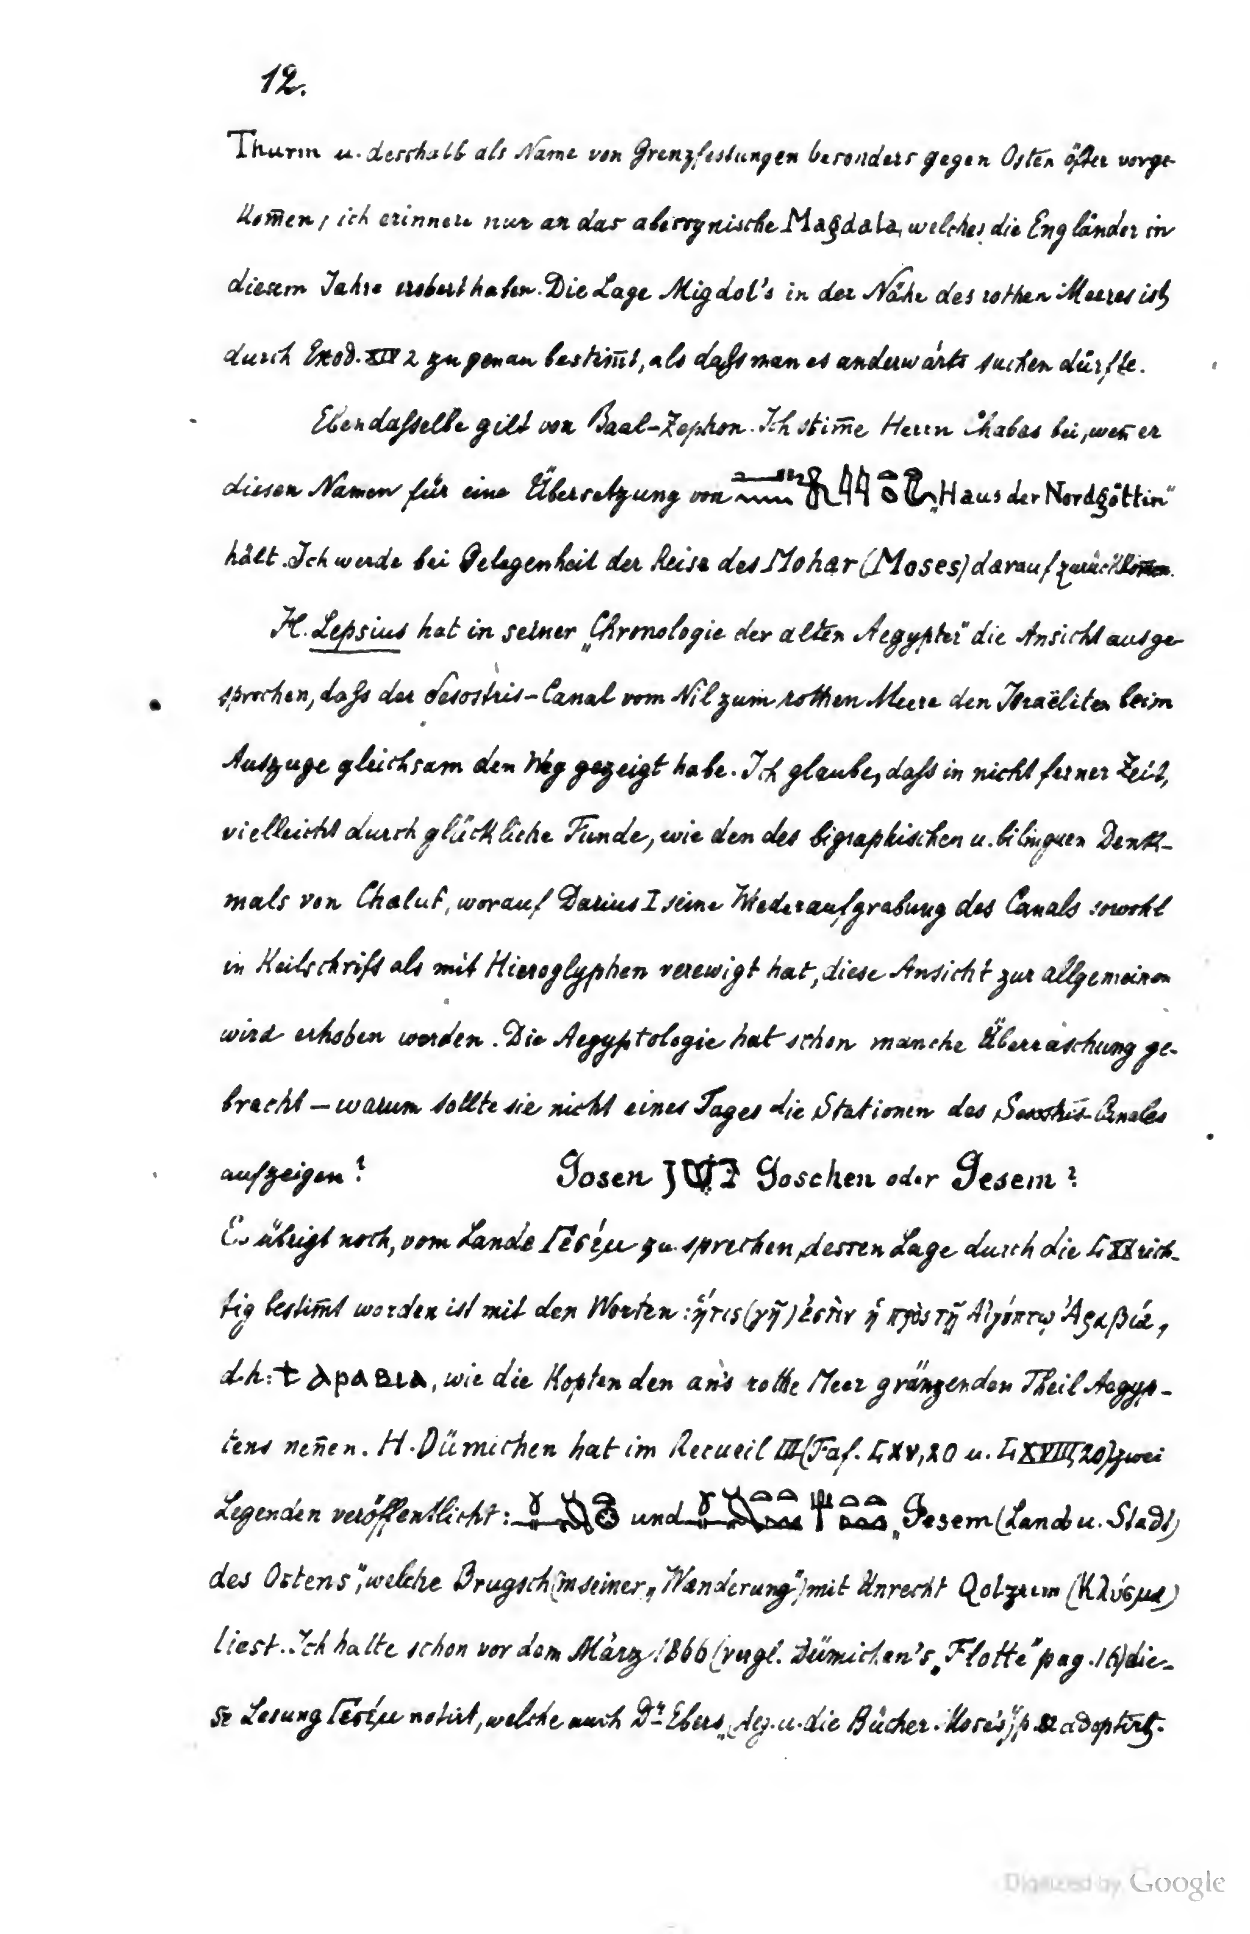 12.
Thurm u. desshalb als Name von Grenzfestungen besonders gegen Osten öfter vorge-
kom̄en; ich erinnere nur an das abessynische Magdala, welches die Engländer in
diesem Jahre erobert haben. Die Lage Migdol's in der Nähe des rothen Meeres ist
durch Exod. XIV 2 zu genau bestim̄t, als daſs man es anderwärts suchen dürfte.
Ebendaſselbe gilt von Baal-Zephon. Ich stim̄e Herrn Chabas bei, wen̄ er
diesen Namen für eine Übersetzung von „Haus der Nordgöttin"
hält. Ich werde bei Gelegenheit der Reise des Mohar (Moses) darauf zurückkom̄en.
H. Lepsius hat in seiner „Chronologie der alten Aegypter" die Ansicht ausge-
sprochen, daſs der Sesostris-Canal vom Nil zum rothen Meere den Israëliten beim
Auszuge gleichsam den Weg gezeigt habe. Ich glaube, daſs in nicht ferner Zeit,
vielleicht durch glückliche Funde, wie den des bigraphischen u. bilinguen Denk-
mals von Chaluf, worauf Darius I seine Wiederaufgrabung des Canals sowohl
in Keilschrift als mit Hieroglyphen verewigt hat, diese Ansicht zur allgemeinen
wird erhoben werden. Die Aegyptologie hat schon manche Überraschung ge-
bracht – warum sollte sie nicht eines Tages die Stationen des Sesostris-Canales
aufzeigen? Gosen גשן Goschen oder Gesem?
Es übrigt noch, vom Lande Γεσέμ zu sprechen, dessen Lage durch die LXX rich-
tig bestim̄t worden ist mit den Worten: ἥτις (γῆ) ἐστὶν ἡ πρὸς τῇ Αἰγύπτῳ Ἀραβίᾳ,
d.h.: ϯ ⲁⲣⲁⲃⲓⲁ, wie die Kopten den an's rothe Meer gränzenden Theil Aegyp-
tens nen̄en. H. Dümichen hat im Recueil III (Taf. LXV, 20 u. LXVIII, 20) zwei
Legenden veröffentlicht: und „Gesem (Land u. Stadt)
des Ostens", welche Brugsch (in seiner „Wanderung") mit Unrecht Qolzum (Κλύσμα)
liest. Ich hatte schon vor dem März 1866 (vergl. Dümichen's „Flotte" pag. 16) die-
se Lesung Γεσέμ notirt, welche auch Dr Ebers „Aeg. u. die Bücher Mose's" p. adoptirt.
Digitized by Google